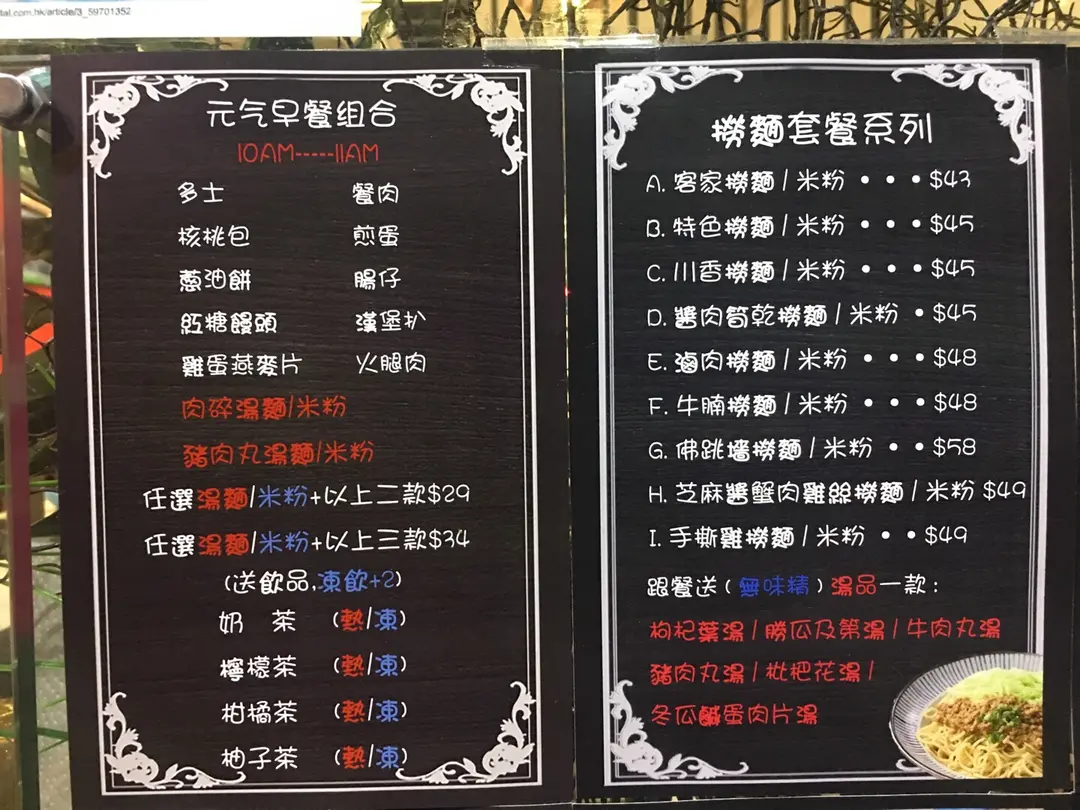 tal.com.hk/article/3_59701352
元气早餐组合
10AM-----11AM
多士 餐肉
核桃包 煎蛋
蔥油餅 腸仔
紅糖饅頭 漢堡扒
雞蛋燕麥片 火腿肉
肉碎湯麵/米粉
豬肉丸湯麵/米粉
任選湯麵/米粉+以上二款$29
任選湯麵/米粉+以上三款$34
(送飲品,凍飲+2)
奶 茶 (熱/凍)
檸檬茶 (熱/凍)
柑橘茶 (熱/凍)
柚子茶 (熱/凍)
撈麵套餐系列
A. 客家撈麵 / 米粉 • • • $43
B. 特色撈麵 / 米粉 • • • $45
C. 川香撈麵 / 米粉 • • • $45
D. 醬肉筍乾撈麵 / 米粉 • $45
E. 滷肉撈麵 / 米粉 • • • $48
F. 牛腩撈麵 / 米粉 • • • $48
G. 佛跳墙撈麵 / 米粉 • • $58
H. 芝麻醬蟹肉雞絲撈麵 / 米粉 $49
I. 手撕雞撈麵 / 米粉 • • $49
跟餐送 ( 無味精 ) 湯品一款 :
枸杞葉湯 / 勝瓜及第湯 / 牛肉丸湯
豬肉丸湯 / 枇杷花湯 /
冬瓜鹹蛋肉片湯